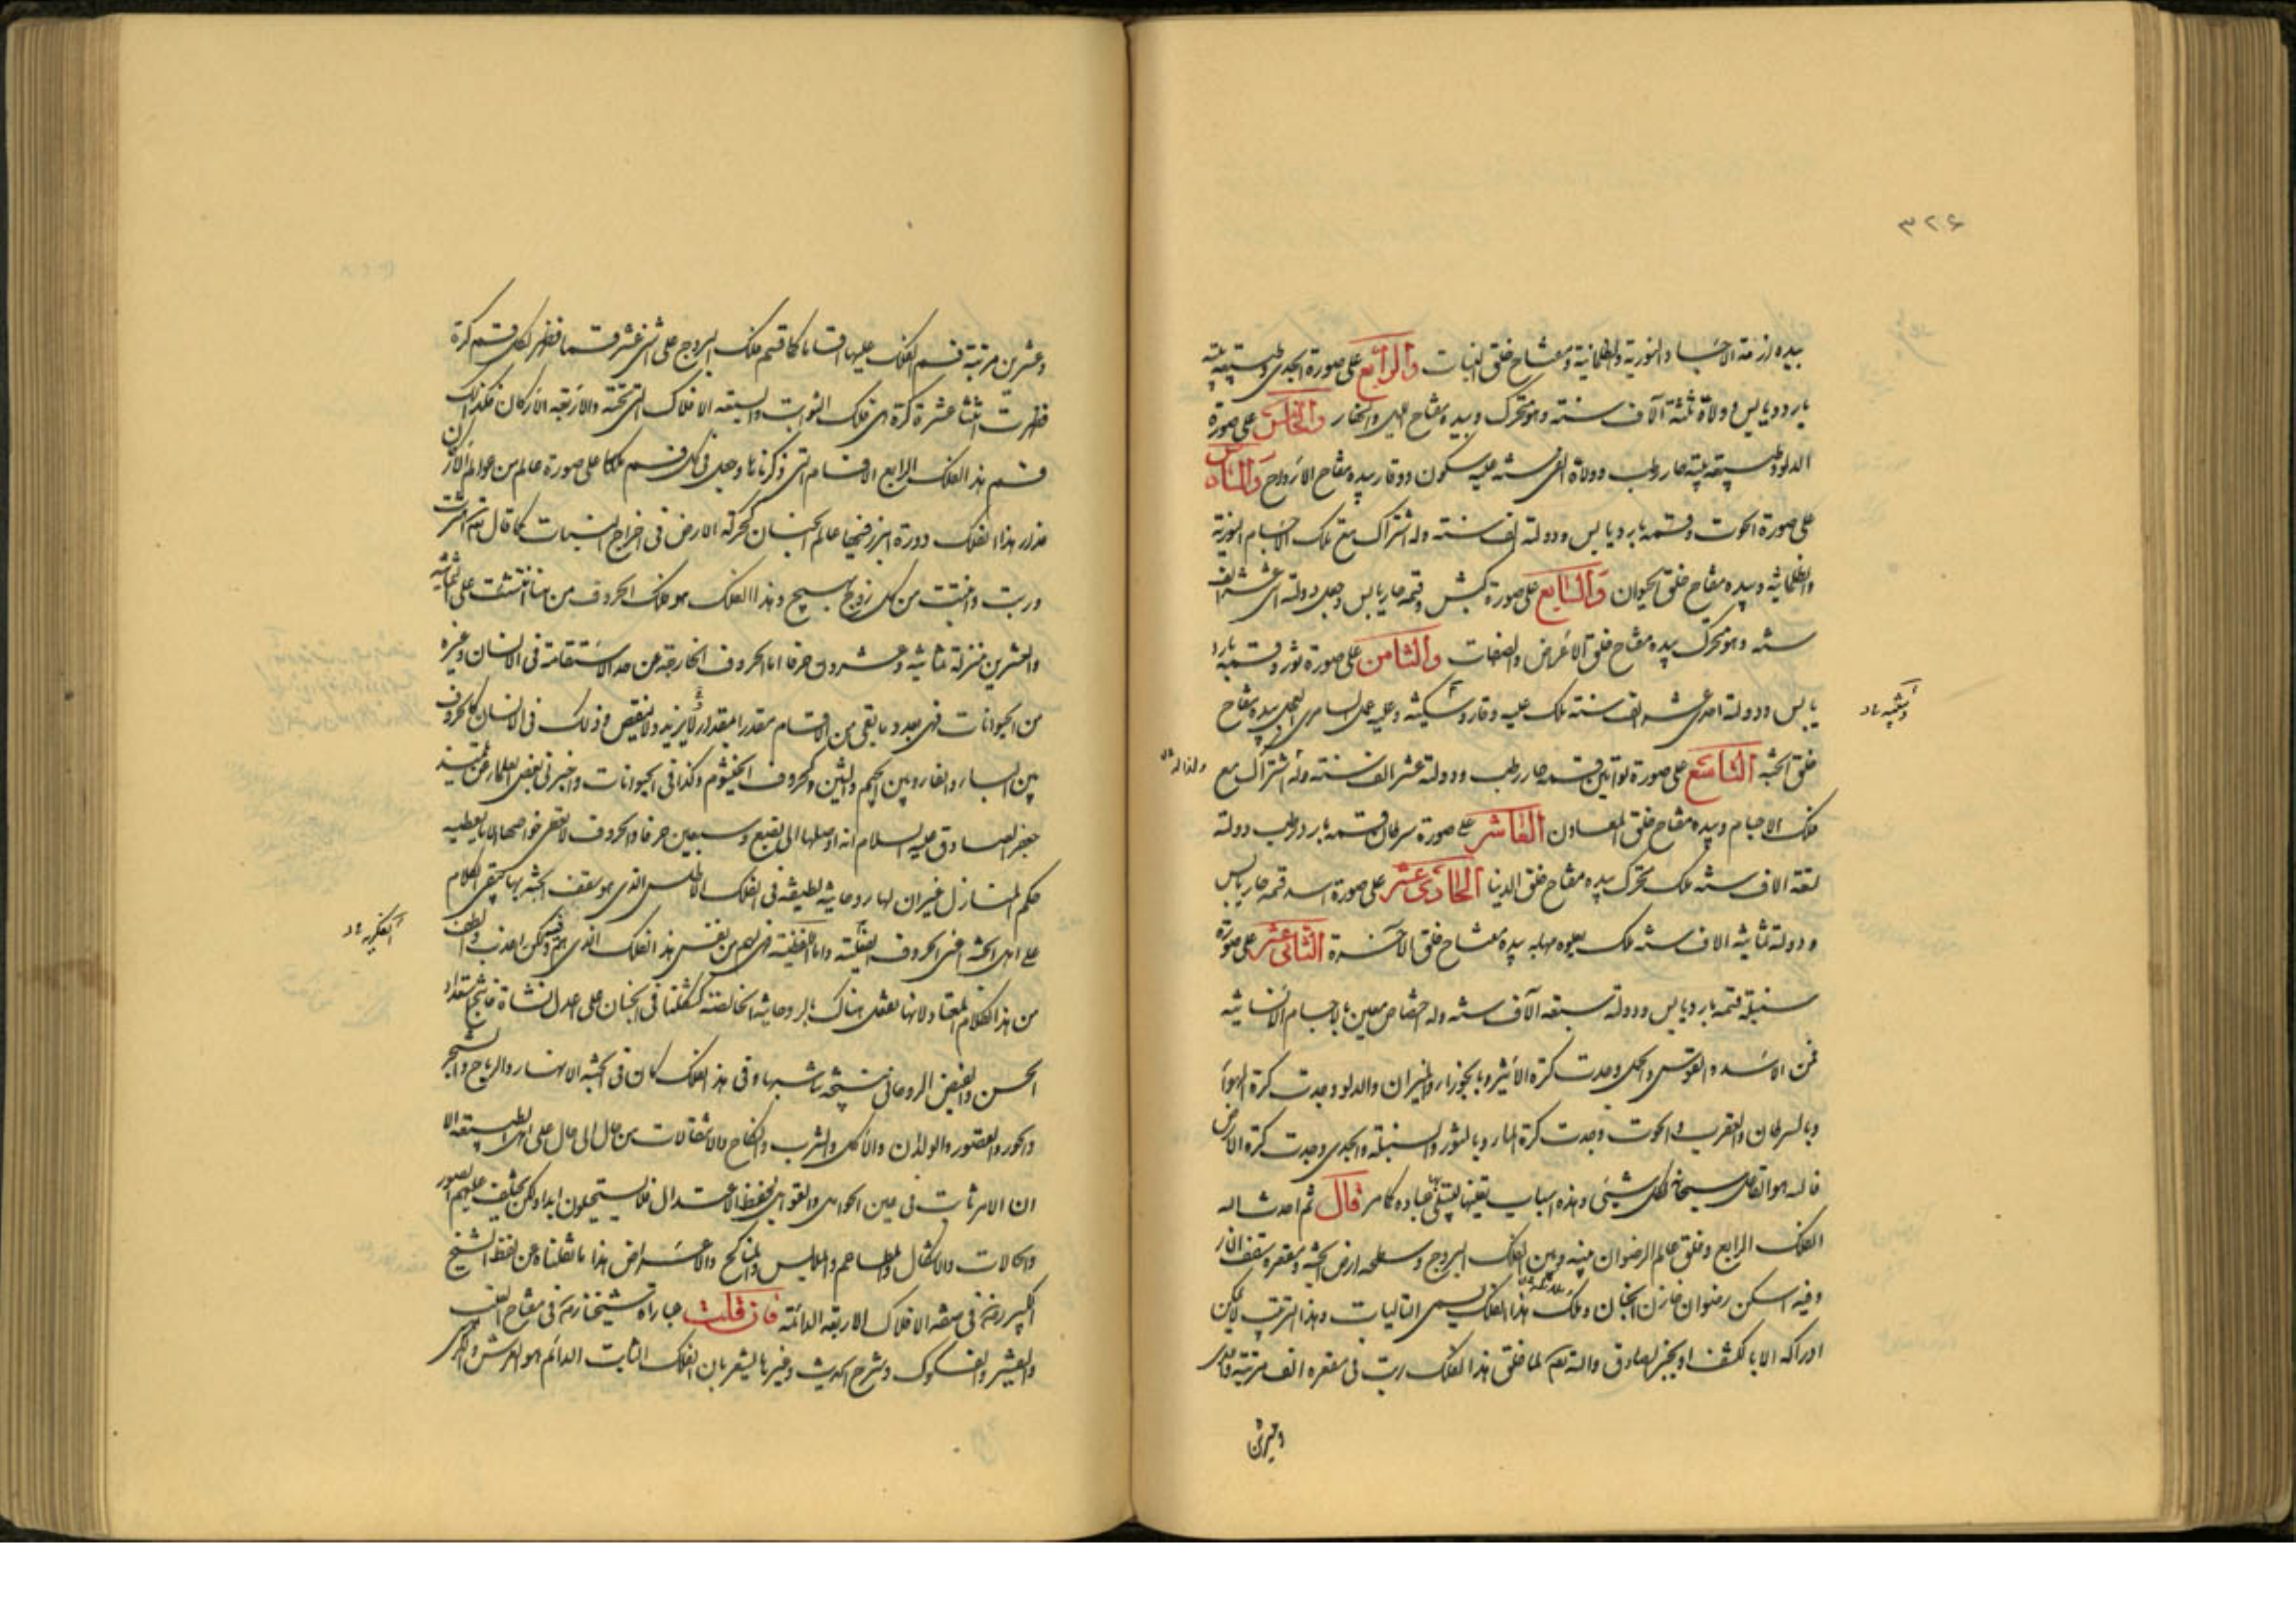 ٣٢٦
بيده ازمة الاجساد النورية والظلمانية ومفتاح خلق النبات والرابع على صورة الجدى وطبيعته
بارد ويابس وولاة ثلثة آلاف سنته وهو متحرك وبيده مفتاح الليل والنهار والخامس على صورة
الدلو وطبيعته حار رطب وولاة الفى سنته عليه سكون ووقار بيده مفتاح الارواح والسادس
على صورة الحوت وقسمه بارد يابس ودولته الف سنته وله اشتراك مع ملك الاجسام النورية
والظلمانية وبيده مفتاح خلق الحيوان والسابع على صورة كبش وقسمه حار يابس وجعل دولته اثنى عشر الف
سنته وهو متحرك بيده مفتاح خلق الاعراض والصفات والثامن على صورة ثور وقسمه بارد
يابس ودولته احدى عشر الف سنته ملك عليه وقار وسكينة وعليه عمل السامرى العجل بيده مفتاح
خلق الجنة التاسع على صورة توأمين قسمه حار رطب ودولته عشر الف سنته وله اشتراك مع
ملك الاجسام وبيده مفتاح خلق المعادن العاشر على صورة سرطان قسمه بارد رطب دولته
تسعة الاف سنته ملك متحرك بيده مفتاح خلق الدنيا الحادى عشر على صورة اسد قسمه حار يابس
ودولته ثمانية الاف سنته ملك يعلوه مهابه بيده مفتاح خلق الآخرة الثانى عشر على صورة
سنبلة قسمه بارد يابس ودولته سبعة آلاف سنته وله اختصاص معين بالاجسام الانسانية
فمن الاسد والقوس والحمل وجدت كرة الاثير وبالجوزاء والميزان والدلو وجدت كرة الهواء
وبالسرطان والعقرب والحوت وجدت كرة الماء وبالثور والسنبلة والجدى وجدت كرة الارض
فالله هو الفاعل سبحانه لكل شيئ وهذه اسباب يعينها ليبتلى بها عباده كما مر قال ثم احدث الله
الفلك الرابع وخلق عالم الرضوان بينه وبين الفلك البروج وسطحه ارض الجنة ومقعره سقف النار
وفيه اسكن رضوان خازن الجنان وملك هذا الفلك يسمى التاليات وهذا الترتيب لا يمكن
ادراكه الا بالكشف او بخبر الصادق والله تعم لما خلق هذا الفلك رتب فى مقعره الف مرتبة واحدى
وعشرين
وعشرين مرتبة قسم الفلك عليها اقساما كما قسم فلك البروج على اثنى عشر قسما فظهر لكل قسم كرة
فظهرت اثنتا عشرة كرة هى فلك الثوابت والسبعة الافلاك التى تحته والاربعة الاركان فكذلك
قسم هذا الفلك الرابع الاقسام التى ذكرناها وجعل فى كل قسم ملكا على صورة عالم من عوالم الاركان
فدار هذا الفلك دورة ابرز فيها عالم الجنان كحركة الارض فى اخراج النبات كما قال تعم اهتزت
وربت وانبتت من كل زوج بهيج وهذا الفلك هو فلك الحروف من هنا انتشت على الثمانية
والعشرين منزلة ثمانية وعشرون حرفا اما الحروف الخارجة عن حد الاستقامة فى الانسان وغيره
من الحيوانات فهى بعدد ما بقى من الاقسام مقدرا بمقدار لا يزيد ولا ينقص وذلك فى الانسان كالحروف
بين الباء والفاء وبين الجيم والشين وكحروف الخيشوم وكذا فى الحيوانات واخبرنى بعض العلماء عن
جعفر الصادق عليه السلام انه اوصلها الى بضع وسبعين حرفا والحروف لا تعطى خواصها الا ما يعطيه
حكم المنازل غير ان لها روحانية لطيفة فى الفلك الاطلس الذى هو سقف الجنة بها يبقى الكلام
على اهل الجنة اعنى الحروف واما اللفظية فهى لهم من نفس هذا الفلك الذى هم فيه ولكن اعذب والطف
من هذا الكلام المعتاد لانها تعقل هناك بالروحانية الخالصة كنشأتنا فى الجنان على اعدل النشأة
الحسن والفيض الروحانى شبها وفى هذا الفلك كان فى الجنة الانهار والرياح والشجر
والحور والقصور والولدان والاكل والشرب والنكاح والانتقالات من حال الى حال على اهل الطبيعة الا
ان الامر ثابت فى عين الجواهر والقوابل بحفظ الاعتدال فلا يستحيلون ابدا ولكن يختلف عليهم الصور
والحالات والاشكال والمطاعم والملابس والمناكح والاعراض هذا ما نقلناه عن لفظ الشيخ
الكبير رضه فى صفة الافلاك الاربعة الدائمة فان قلت عبارة شيخنا رضه فى مفتاح الغيب
وشرح الحديث وغيرها ليشعر بان الفلك الثابت الدائم هو العرش والكرسى